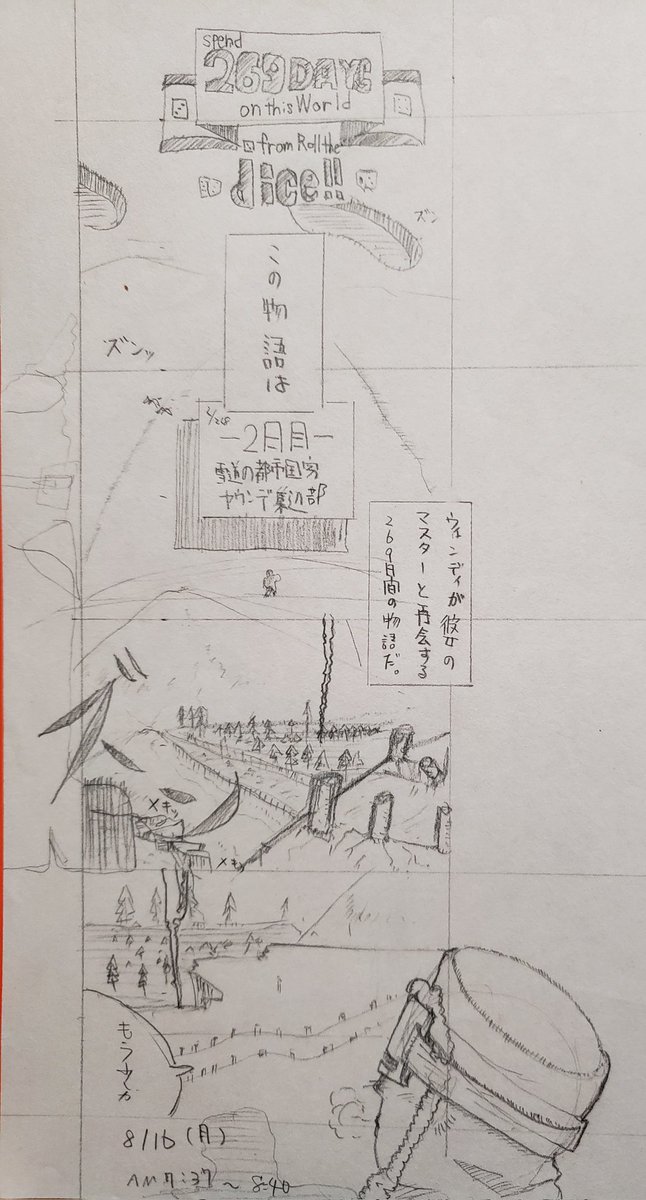 spend
269 DAYS
on this World
from Roll the
dice!!
ズン
この物語は
ズンッ
-2日目-
雪道の都市国家
ヤウンデ東辺部
ウェンディが彼女の
マスターと再会する
269日間の物語だ。
メキッ
メキ
8/16(月)
AM 7:37 ~ 8:40